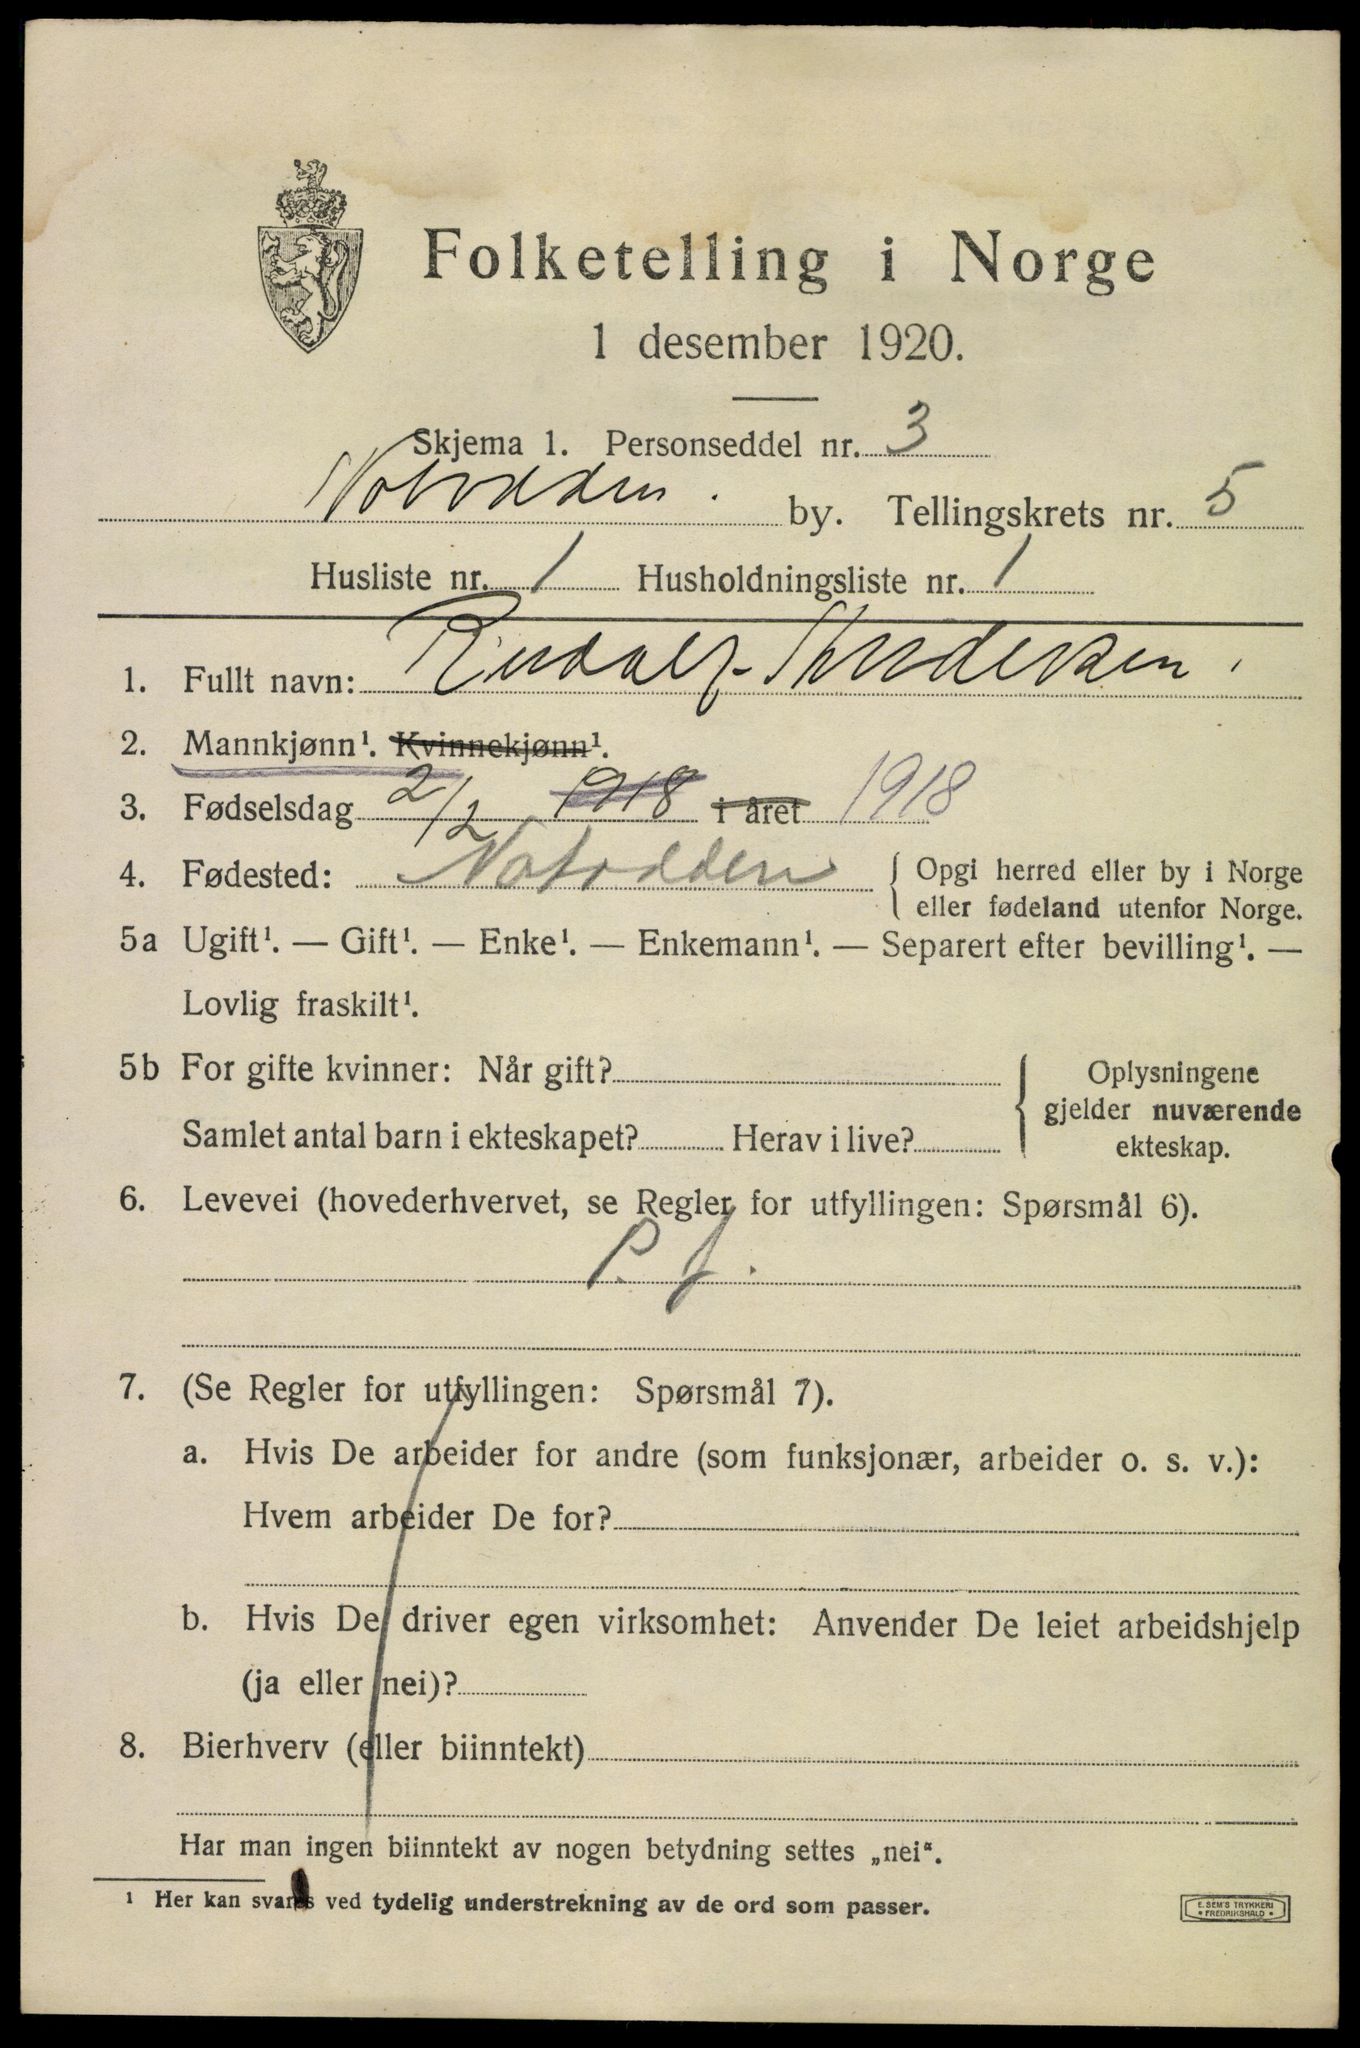 Folketelling i Norge
1 desember 1920.
Skjema 1. Personseddel nr. 3
Notodden. by. Tellingskrets nr. 5
Husliste nr. 1 Husholdningsliste nr. 1
1. Fullt navn: Rudolf
2. Mannkjønn¹. Kvinnekjønn¹.
3. Fødselsdag 2/2 1918 i året 1918
4. Fødested: Notodden { Opgi herred eller by i Norge
eller fødeland utenfor Norge.
5a Ugift¹. — Gift¹. — Enke¹. — Enkemann¹. — Separert efter bevilling¹. —
Lovlig fraskilt¹.
5b For gifte kvinner: Når gift? { Oplysningene
gjelder nuværende
Samlet antal barn i ekteskapet? Herav i live?
ekteskap.
6. Levevei (hovederhvervet, se Regler for utfyllingen: Spørsmål 6).
P. f.
7. (Se Regler for utfyllingen: Spørsmål 7).
a. Hvis De arbeider for andre (som funksjonær, arbeider o. s. v.):
Hvem arbeider De for?
b. Hvis De driver egen virksomhet: Anvender De leiet arbeidshjelp
(ja eller nei)?
8. Bierhverv (eller biinntekt)
Har man ingen biinntekt av nogen betydning settes „nei“.
¹ Her kan svares ved tydelig understrekning av de ord som passer.
E. SEM'S TRYKKERI
• FREDRIKSHALD •